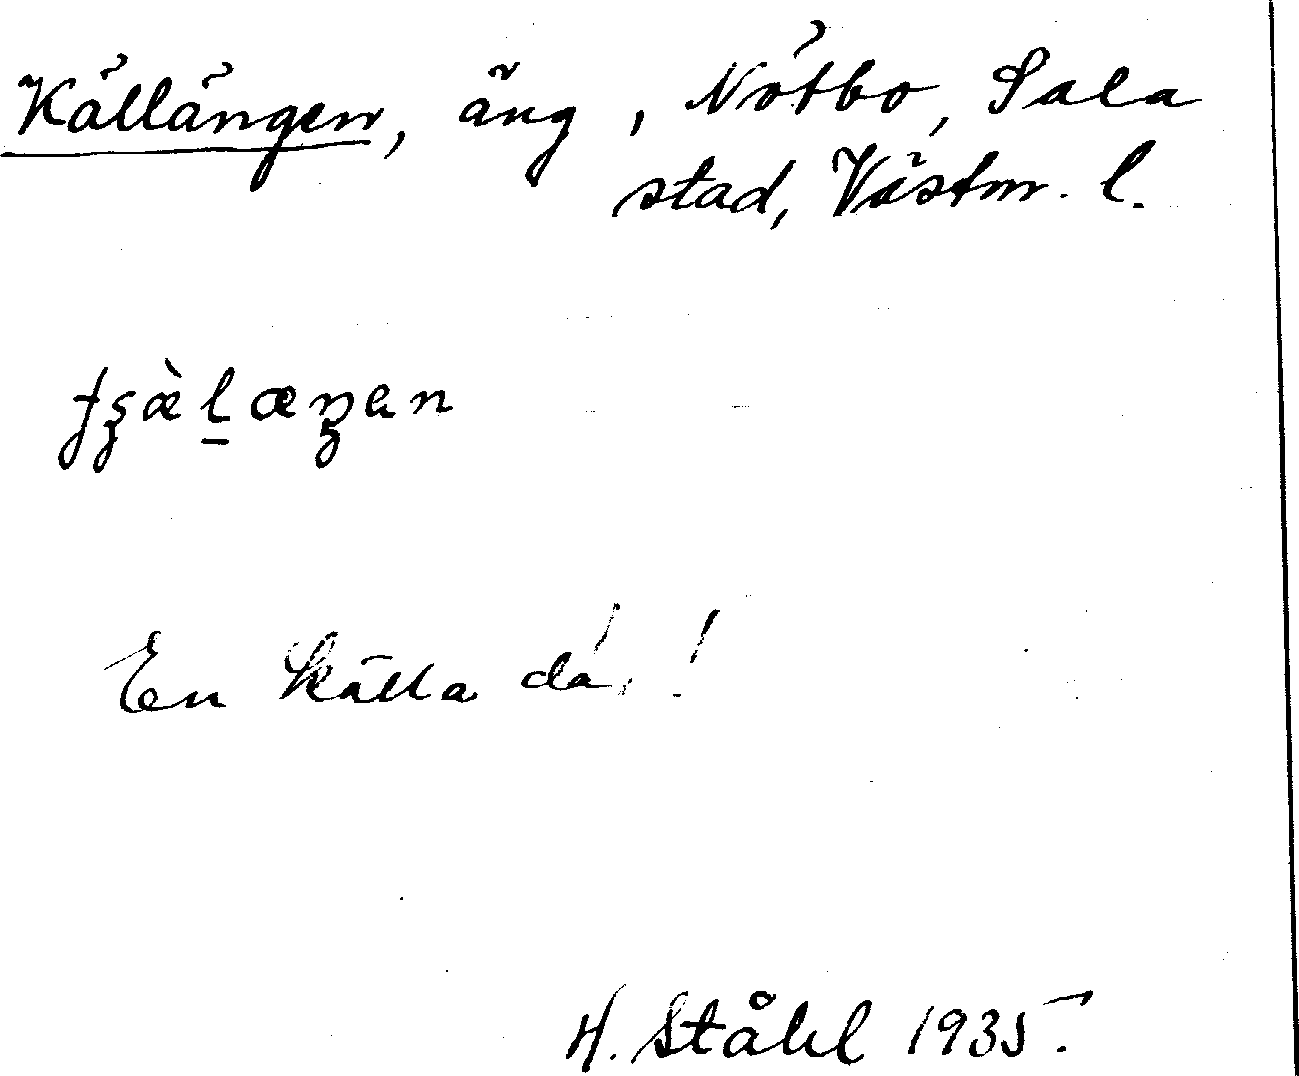 Källängen, äng, Nötbo, Sala
stad, Västm. l.
En källa dä. !
H. Ståhl 1935.